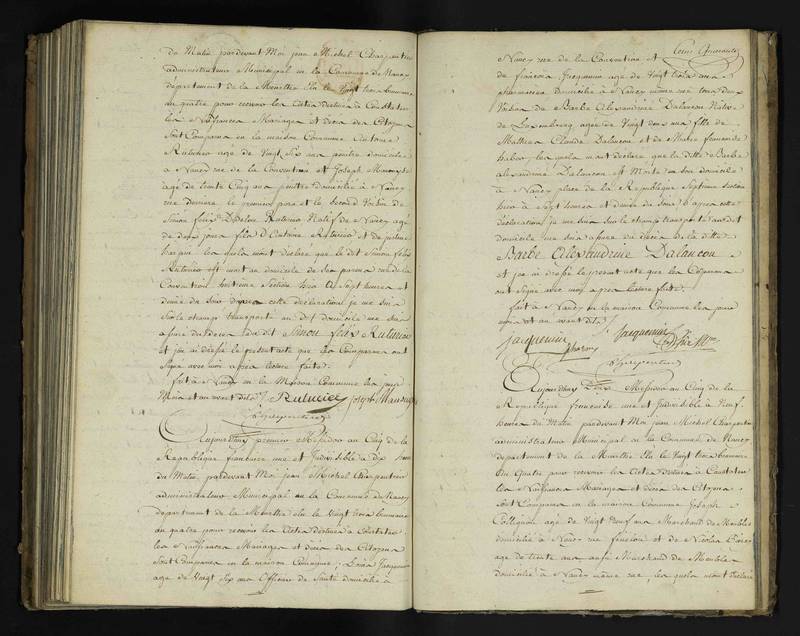 du Matin pardevant Moi jean Michel Charpentier
administrateur Municipal en la Commune de Nancy
departement de la Meurthe Elu le Vingt trois brumaire
an quatre pour recevoir les Actes destinés à Constater
les Naissances Mariages et décès des Citoyens
sont Comparus en la maison Commune Antoine
Rutinier agé de Vingt Six ans peintre domicilié
à Nancy rue de la Convention et Joseph
agé de trente Cinq ans peintre domicilié à Nancy
rue derriere le premier pere et le second Voisin de
Simon felix Rutinier Natif de Nancy agé
de jours fils d'Antoine Rutinier et de justine
les quels m'ont déclaré que le dit Simon felix
Rutinier est mort au domicile de ses peres rue de la
Convention huitieme Section hier à Sept heures et
demie du Soir d'apres cette déclaration je me suis
Sur le champ transporté au dit domicile me suis
assuré du décès du dit Simon felix Rutinier
et j'ai dressé le present acte que les Comparans ont
Signé avec moi apres lecture faite.
fait à Nancy en la Maison Commune les jour
Mois et an avant dits Rutinier joseph
Charpentier
Aujourdhuy premier Messidor an Cinq de la
Republique française une et Indivisible à Dix heures
du Matin pardevant Moi jean Michel Charpentier
administrateur Municipal en la Commune de Nancy
departement de la Meurthe elu le Vingt trois brumaire
an quatre pour recevoir les Actes destinés à Constater
les Naissances Mariages et décès des Citoyens
sont Comparus en la maison Commune; Louis Jacquemin
agé de Vingt Six ans Officier de Santé domicilié à
Cent Quarante
Nancy rue de la Convention et
de françois Jacquemin agé de Vingt trois ans
pharmacien domicilié à Nancy même rue tous deux
Voisins de Barbe Alexandrine Dalancou Native
de Luxembourg agée de Vingt deux ans fille de
Mathieu Claude Dalancou et de Marie françoise
les quels m'ont déclaré que la ditte Barbe
alexandrine Dalancou est Morte en son domicile
à Nancy place de la Republique Septieme Section
hier à Sept heures et demie du Soir d'apres cette
déclaration je me suis sur le champ transporté au dit
domicile me suis assuré du décès de la ditte
Barbe Alexandrine Dalancou
et j'ai dressé le present acte que les Comparans
ont Signé avec moi apres lecture faite.
fait à Nancy en la maison Commune les jour
mois et an avant dits
jacquemin Jacquemin
Charpentier
Aujourdhuy Deux Messidor an Cinq de la
Republique française une et Indivisible à Neuf
heures du Matin pardevant Moi jean Michel Charpentier
administrateur Municipal en la Commune de Nancy
departement de la Meurthe Elu le Vingt trois brumaire
an Quatre pour recevoir les Actes destinés à Constater
les Naissances Mariages et décès des Citoyens
sont Comparus en la maison Commune Joseph
Collignon agé de Vingt Neuf ans Marchand de Meubles
domicilié à Nancy rue fenelon et de Nicolas
agé de trente ans aussi Marchand de Meubles
domicilié à Nancy même rue, les quels m'ont déclaré